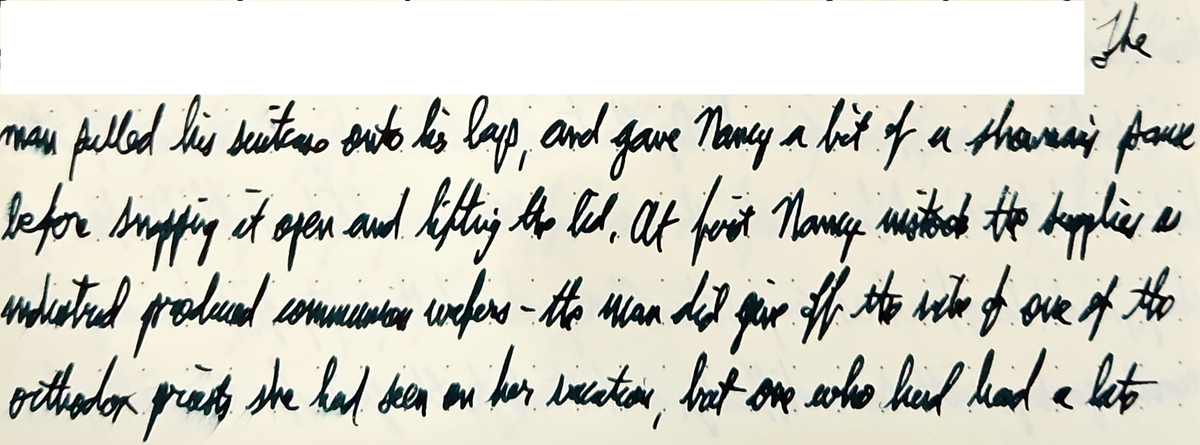 The
man pulled his suitcase onto his lap, and gave Nancy a bit of a showman's pause
before snapping it open and lifting the lid. At first Nancy mistook the supplies as
industrial produced communion wafers - the man did give off the vibe of one of the
orthodox priests she had seen on her vacation, but one who had had a late